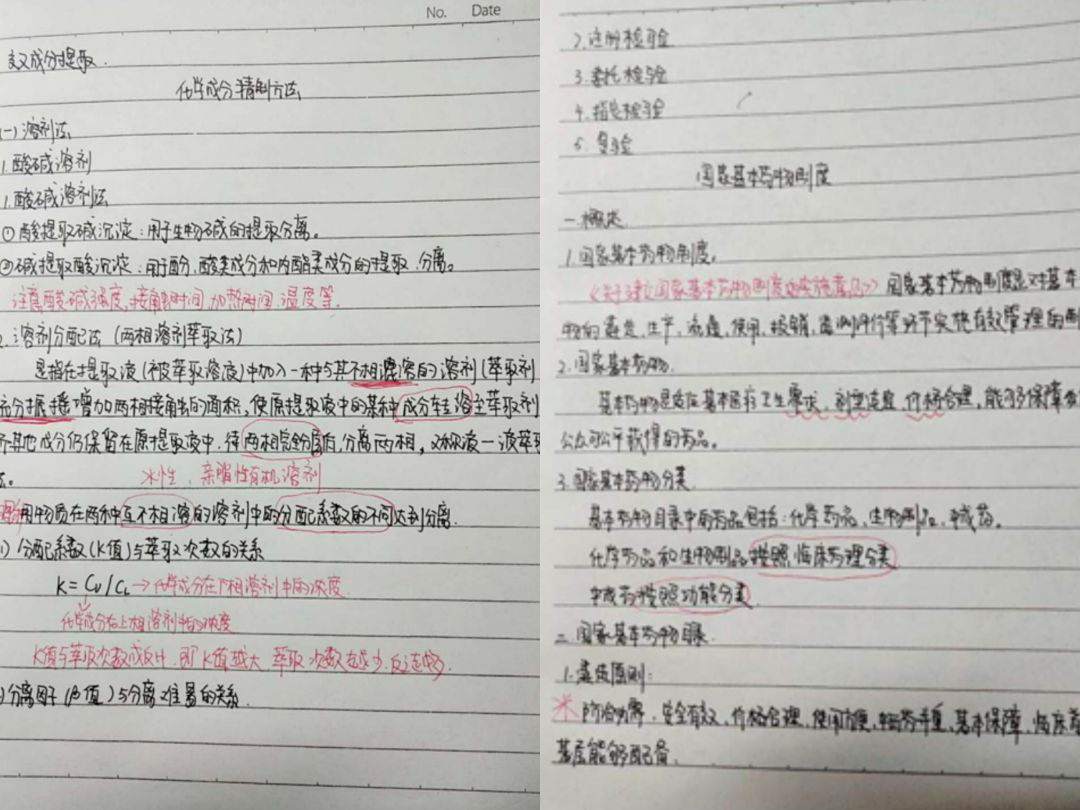 No. Date
成分提取.
化学成分精制方法
(一)溶剂法
1.酸碱溶剂
1.酸碱溶剂法
①酸提取碱沉淀:用于生物碱的提取分离。
②碱提取酸沉淀:用于酚、酸类成分和内酯类成分的提取、分离。
注意酸碱强度,接触时间,加热时间,温度等。
2.溶剂分配法(两相溶剂萃取法)
是指在提取液(被萃取溶液)中加入一种与其不相混溶的溶剂(萃取剂
充分振摇增加两相接触的面积,使原提取液中的某种成分 溶 萃取剂
其他成分仍保留在原提取液中,待两相 后,分离两相,又称液一液萃取
法。 水性、亲脂性有机溶剂
用物质在两种互不相溶的溶剂中的分配系数的不同达到分离.
1)分配系数(K值)与萃取次数的关系
K=Cu/CL→化学成分在下相溶剂中的浓度
化学成分在上相溶剂中的浓度
K值与萃取次数成反比,即K值越大,萃取次数越少,反之
分离因子(β值)与分离难易的关系.
2.注册检验
3.委托检验
4.指定检验
5.复验
国家基本药物制度
一.概述
1.国家基本药物制度。
《关于建立国家基本药物制度的实施意见》国家基本药物制度是对基本
物的遴选,生产,流通,使用,报销,监测评价等环节实施有效管理的制
2.国家基本药物.
基本药物是适应基本医疗卫生需求,剂型适宜,价格合理,能够保障
公众可公平获得的药品。
3.国家基本药物分类
基本药物目录中的药品包括:化学药品,生物制品,中成药。
化学药品和生物制品按照临床药理分类
中成药按照功能分类
二.国家基本药物目录.
1.遴选原则:
防治必需,安全有效,价格合理,使用方便,中西药并重,基本保障,临床首
基层能够配备.